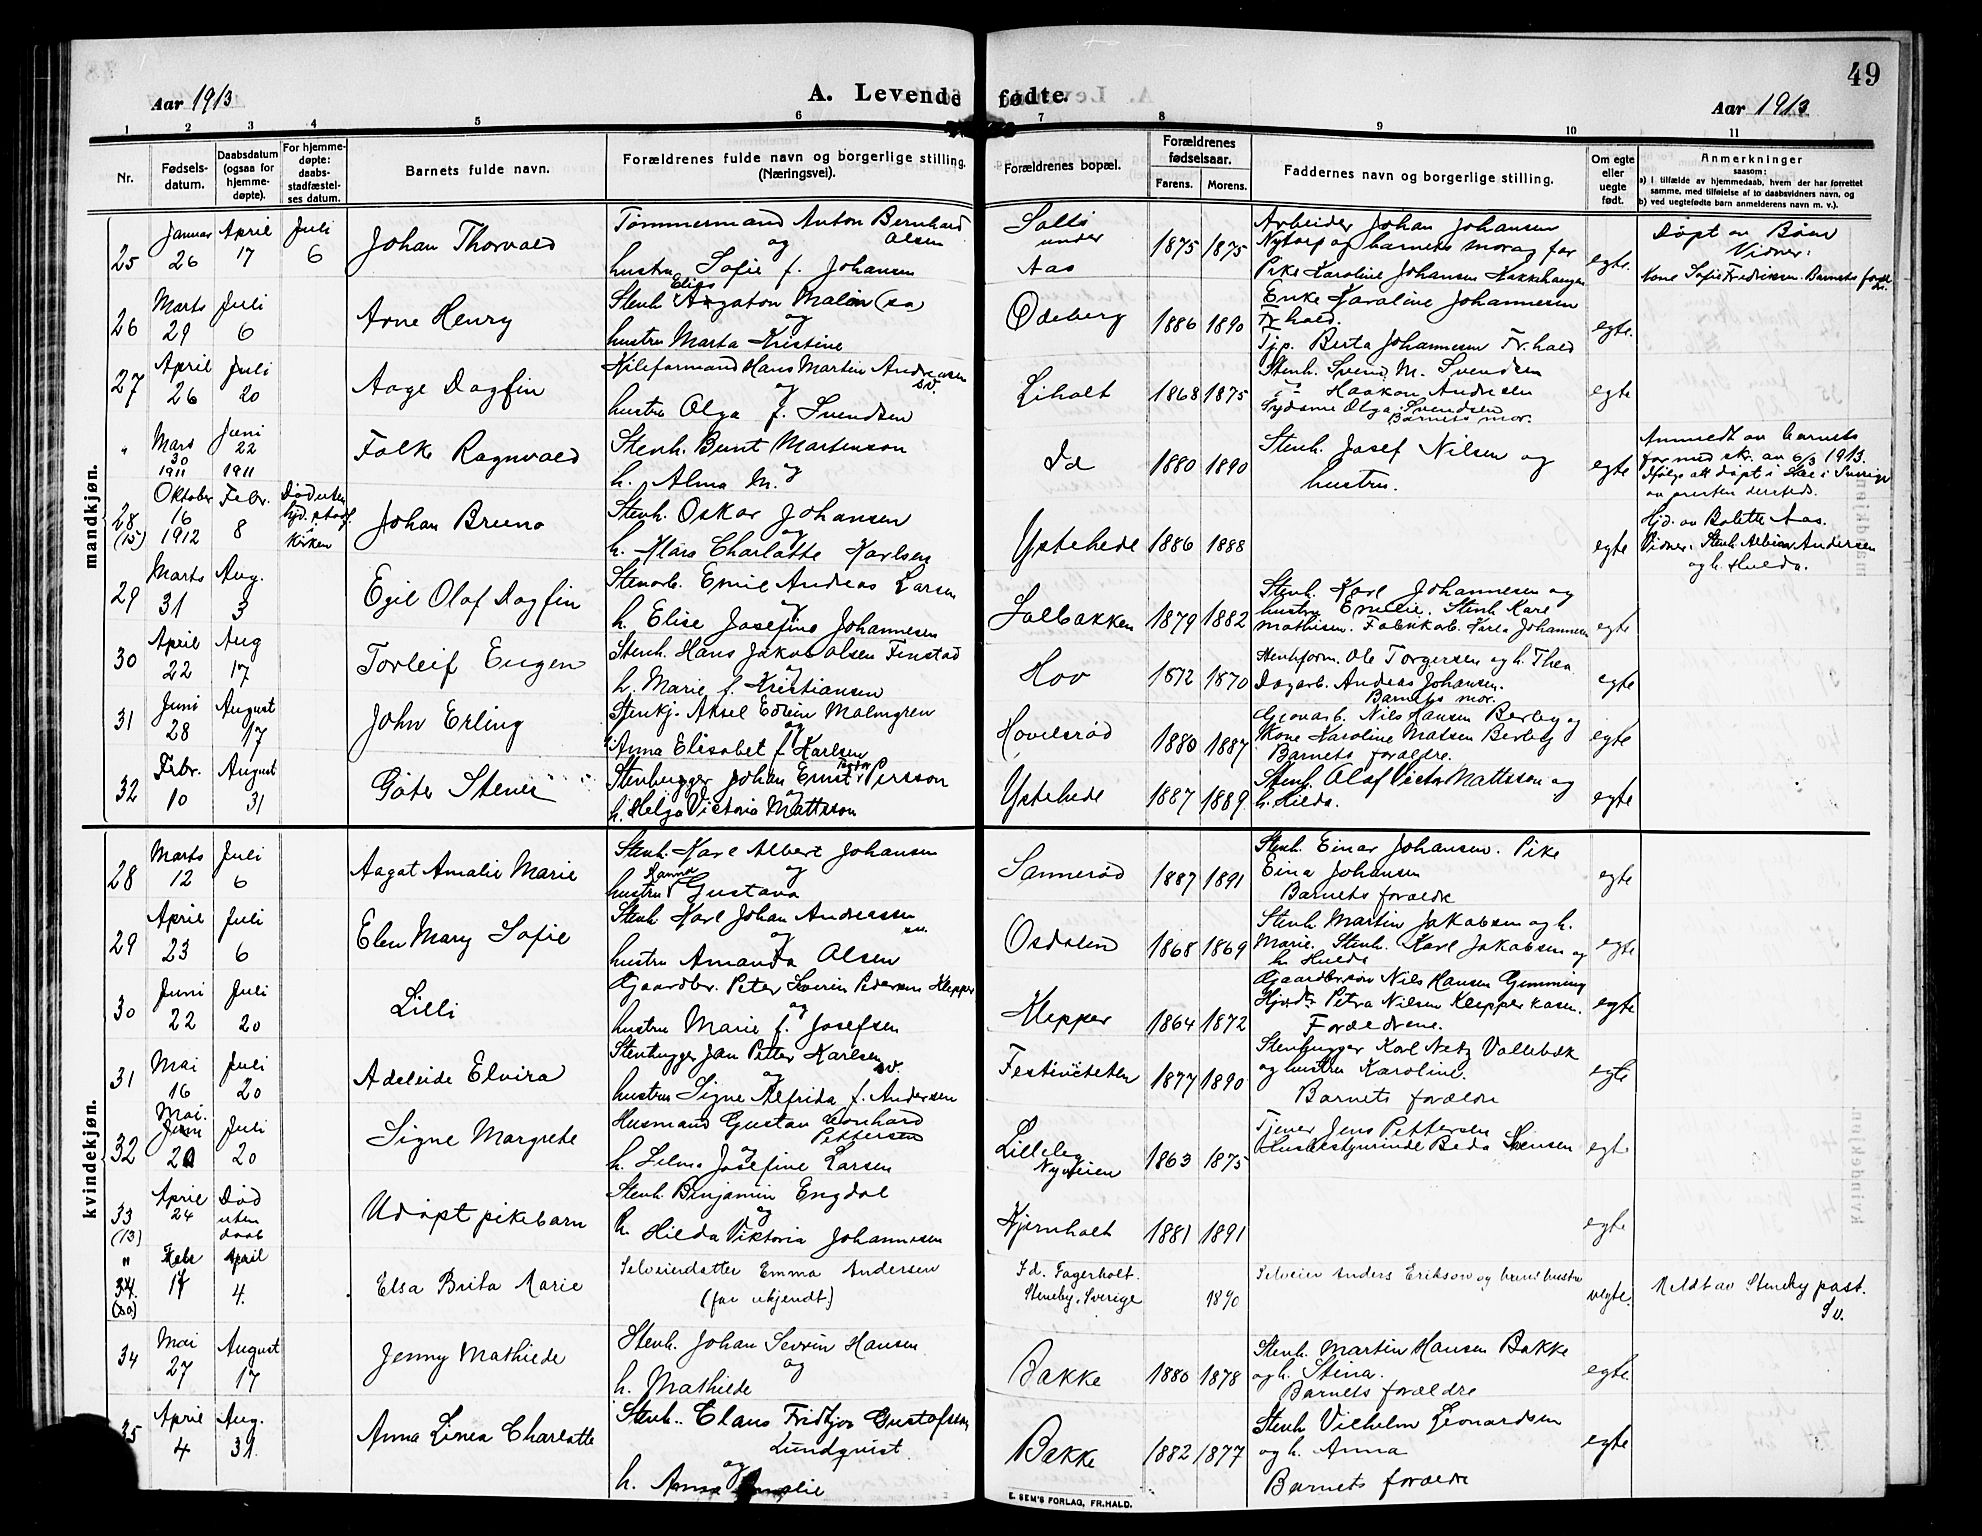 49
Aar 1913
A. Levende fødte.
Aar 1913
1 2 3 4 5 6 7 8 9 10 11
Nr.
Fødsels-
datum.
Daabsdatum
(ogsaa for
hjemme-
døpte).
For hjemme-
døpte:
daabs-
stadfæstel-
ses datum.
Barnets fulde navn.
Forældrenes fulde navn og borgerlige stilling.
(Næringsvei).
Forældrenes bopæl.
Forældrenes
fødselsaar.
Farens. Morens.
Faddernes navn og borgerlige stilling.
Om egte
eller
uegte
født.
Anmerkninger
saasom:
a) I tilfælde av hjemmedaab, hvem der har forrettet
samme, med tilføielse af to daabsvidners navn, og
b) ved uegtefødte barn anmelderens navn m. v.).
mandkjøn.
25
Januar 26
April 17
Juli 6
Johan Thorvald
Tømmermand Anton Bernhard
Olsen
og
hustru Sofie f. Johansen
under
Aas
1875 1875
Arbeider Johan Johansen
Nytorp og barnets mor og far
Pike Karoline Johansen
egte.
Døpt av
Vidner:
Kone Sofie Fredriksen. Barnets
26
Marts 29
Juli 6
Arne Henry
Stenh. Elias Agaton Malin (sv)
og
hustru Marta Kristine
Ødeberg
1886 1890
Enke Karoline Johannesen
Fr.hald.
Tjp. Berta Johannesen Fr.hald
egte.
27
April 26
Juli 20
Aage Dagfin
Kileformand Hans Martin Andreasen
sv.
og
hustru Olga f. Svendsen
Liholt
1868 1875
Stenh. Svend M. Svendsen
Haakon Andresen
Sydame Olga Svendsen
Barnets mor.
egte
"
Mars
30
1911
Juni
22
1911
Falk Ragnvald
Stenh. Bernt Martenson
og
h. Alma M.
Id
1880 1890
Stenh. Josef Nilsen og
hustru.
egte
Anmeldt av barnets
far med skr. av 6/3 1913.
28
(15)
Oktober
16
1912
Febr.
8
Død uten
hjd. stadf.
i
Kirken
Johan Bruno
Stenh. Oskar Johansen
og
h. Klara Charlotte Karlsen
Ystehede
1886 1888
egte
Hjd. av Bolette Aas.
Vidner: Stenh. Albin Andersen
og h. Hulda.
29
Marts 31
Aug. 3
Egil Olaf Dagfin
Stenarb. Emil Andreas Larsen
og
h. Elise Josefine Johannesen
Solbakken
1879 1882
Stenh. Karl Johannesen og
hustru Emelie. Stenh. Karl
Mathisen. Fabrikarb. Karla Johannesen
egte
30
April 22
Aug 17
Torleif Eugen
Stenh. Hans Jakob Olsen Finstad
og
h. Marie f. Kristiansen
Hov
1872 1870
Stenhform. Ole Torgersen og h. Thea
Dagarb. Andreas Johansen.
Barnets mor.
egte
31
Juni 28
August 17
John Erling
Stenkj. Aksel Edvin Malmgren
og
Anna Elisabet f. Karlsen
Hovelsrød
1880 1887
Nils Hansen Berby og
Kone Karoline Matsen Berby
Barnets forældre.
egte
32
Febr. 10
August 31
Gøte Stener
Stenhugger Johan Ernst Persson
og
h. Helga Victoria Mattsson
Ystehede
1887 1889
Stenh. Olaf Victor Mattsson og
h. Hilda.
egte
kvindekjøn.
28
Marts 12
Juli 6
Aagot Amalie Marie
Stenh. Karl Albert Johansen
og
hustru Hanna Gustava
Sannerød
1887 1891
Stenh. Einar Johansen. Pike
Eina Johansen
Barnets forældre
egte
29
April 23
Juli 6
Elen Mary Sofie
Stenh. Karl Johan Andreassen
sv.
og
hustru Amanda Olsen
Osdalen
1868 1869
Stenh. Martin Jakobsen og h.
Marie. Stenh. Karl Jakobsen og
h. Hulda
egte
30
Juni 22
Juli 20
Lilli
Gjaardbr. Peter Severin Pedersen Klepper
og
hustru Marie f. Josefsen
Klepper
1864 1872
Gjaardbr.søn Nils Hansen Gimming
Petra Nilsen Klepperkasen.
Forældrene.
egte
31
Mai 16
Juli 20
Adeleide Elvira
Stenhugger Jan Petter Karlsen
sv.
og
hustru Signe Alfrida f. Andersen
Festiviteten
1877 1890
Stenhugger Karl Netz Vallebæk
og hustru Karoline.
Barnets forældre
egte
32
Mai.
Juni
20
Juli 20
Signe Margrete
Husmand Gustav Leonhard
Pettersen
og
h. Selma Josefine Larsen
Lilleleg
Nyveien
1863 1875
Tjener Jens Pettersen
Husbestyrinde Beda Svensen
egte
33
(13)
April 24
Død
uten
daab
Udøpt pikebarn
Stenh. Benjamin Engdal
og
h. Hilda Viktoria Johannesen
Kjernholt
1881 1891
egte
"
34.
(20)
Febr 17
April 4.
Elsa Brita Marie
Selveierdatter Emma Andersen
(far ukjendt)
Id. Fagerholt.
Steneby, Sverige
1890
Selveier Anders Erikson og hans hustru
uegte.
Meldt av Steneby past.
Sv.
34
Mai 27
August 17
Jenny Mathilde
Stenh. Johan Severin Hansen
og
h. Mathilde
Bakke
1880 1878
Stenh. Martin Hansen Bakke
og h. Stina.
Barnets forældre
egte.
35
April 4
Aug. 31.
Anna Linea Charlotte
Stenh. Claus Fridtjov Gustafsson
Lundqvist
og
h. Anna Amalie
Bakke
1882 1877
Stenh Vilhelm Leonardsen
og h. Anna
Barnets forældre
egte
E. SEM'S FORLAG, FR.HALD.